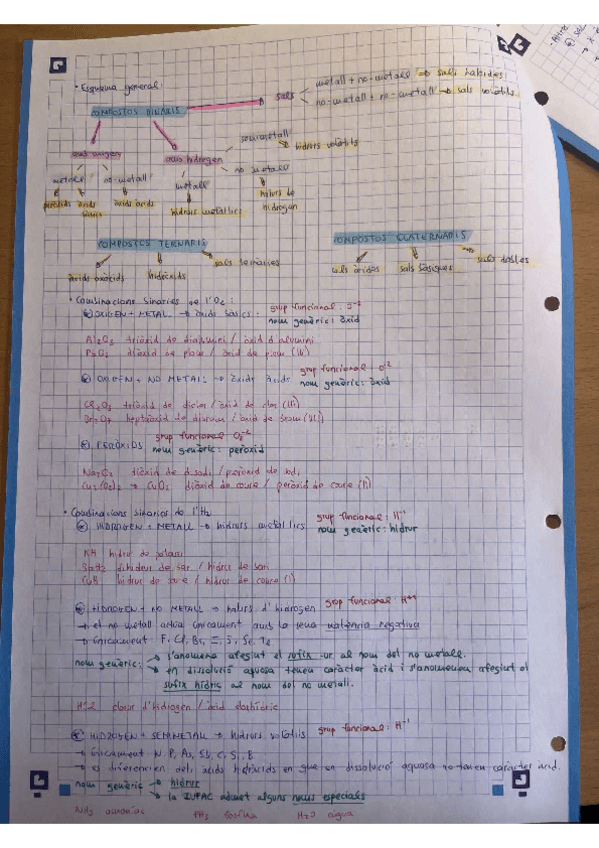 • Esquema general:
COMPOSTOS BINARIS
sals
metall + no-metall → sals haloides
no-metall + no-metall → sals volàtils
amb oxigen
amb hidrogen
semimetall
hidrurs volàtils
metall
no-metall
metall
no metall
peròxids
òxids bàsics
òxids àcids
hidrurs metàl·lics
halurs de hidrogen
COMPOSTOS TERNARIS
COMPOSTOS QUATERNARIS
àcids oxoàcids
hidròxids
sals ternàries
sals àcides
sals bàsiques
sals dobles
• Combinacions binàries de l'O₂:
OXIGEN + METAL → òxids bàsics:
grup funcional:
nom genèric: òxid
Al₂O₃ triòxid de dialumini / òxid d'alumini
PbO₂ diòxid de plom / òxid de plom (IV)
OXIGEN + NO METAL: → òxids àcids
grup funcional: O⁻²
nom genèric: òxid
Cl₂O₃ triòxid de diclor / òxid de clor (III)
Br₂O₇ heptaòxid de dibrom / òxid de brom (VII)
PERÒXIDS
grup funcional O₂⁻²
nom genèric: peròxid
Na₂O₂ diòxid de disodi / peròxid de sodi
Cu₂(O₂)₂ → CuO₂ diòxid de coure / peròxid de coure (II)
• Combinacions binàries de l'H₂
HIDROGEN + METALL → hidrurs metàl·lics
grup funcional: H⁻¹
nom genèric: hidrur
KH hidrur de potassi
BaH₂ dihidrur de bari / hidrur de bari
CuH hidrur de coure / hidrur de coure (I)
HIDROGEN + NO METALL → halurs d'hidrogen
grup funcional: H⁺¹
→ el no metall actua únicament amb la seva valència negativa
→ únicament: F, Cl, Br, I, S, Se, Te
nom genèric:
→ s'anomena afegint el sufix -ur al nom del no metall.
→ en dissolució aquosa tenen caràcter àcid i s'anomenen afegint el
sufix hídric al nom del no metall.
clorur d'hidrogen / àcid clorhídric
HIDROGEN + SEMIMETALL → hidrurs volàtils
grup funcional: H⁻¹
→ únicament: N, P, As, Sb, C, Si, B
→ es diferencien dels àcids hidràcids en que en dissolució aquosa no tenen caràcter àcid.
nom genèric
→ hidrur
→ la IUPAC admet alguns noms especials
NH₃ amoníac
PH₃ fosfina
H₂O aigua